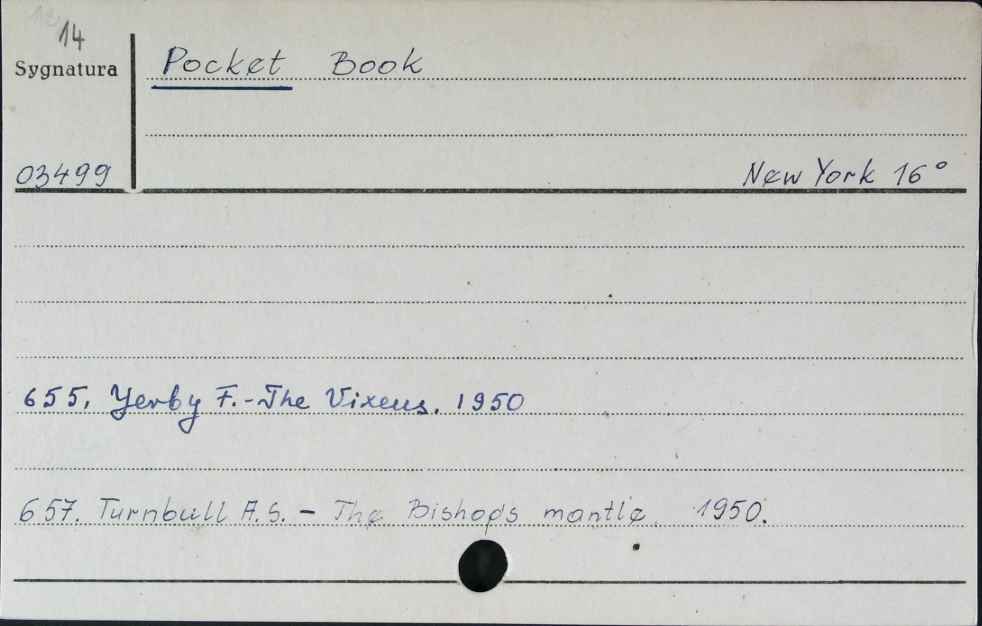 14
Sygnatura
Pocket Book
03499
New York 16°
655, Yerby F. - The Vixens. 1950
657. Turnbull A.S. - The Bishop's mantle. 1950.